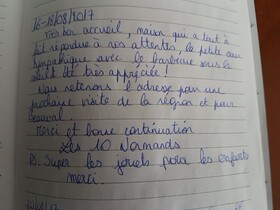 16-18/08/2017
Très bon accueil, maison qui a tout à
fait répondue à nos attentes, le petite cour
sympathique avec le barbecue sous le
soleil été très appréciée !
Nous retenons l'adresse pour une
prochaine visite de la région et pour
Beauval.
Merci et bonne continuation
Les 10 Normands
PS. Super les jouets pour les enfants
merci.